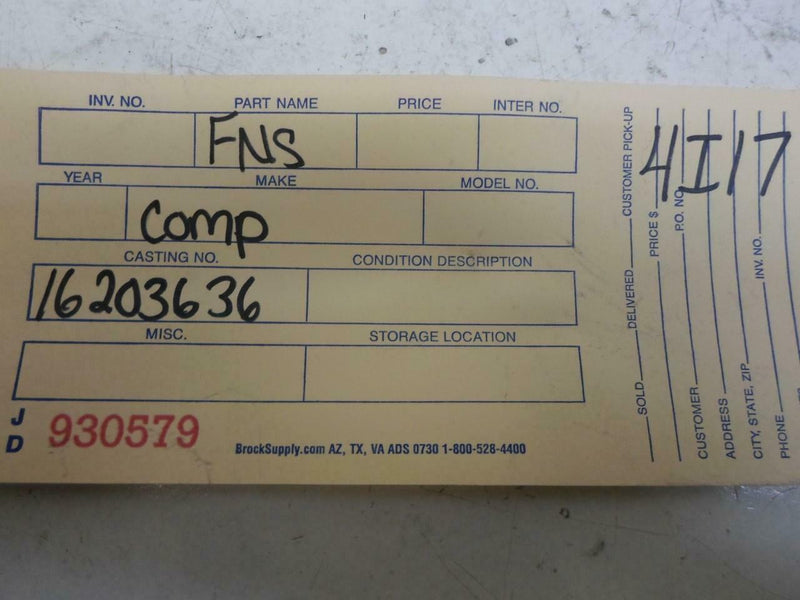 INV. NO. PART NAME PRICE INTER NO.
FNS
YEAR MAKE MODEL NO.
Comp
CASTING NO. CONDITION DESCRIPTION
16203636
MISC. STORAGE LOCATION
JD 930579
BrockSupply.com AZ, TX, VA ADS 0730 1-800-528-4400
4I17
SOLD DELIVERED CUSTOMER PICK-UP
PRICE $
CUSTOMER P.O. NO.
ADDRESS
CITY, STATE, ZIP
PHONE INV. NO.